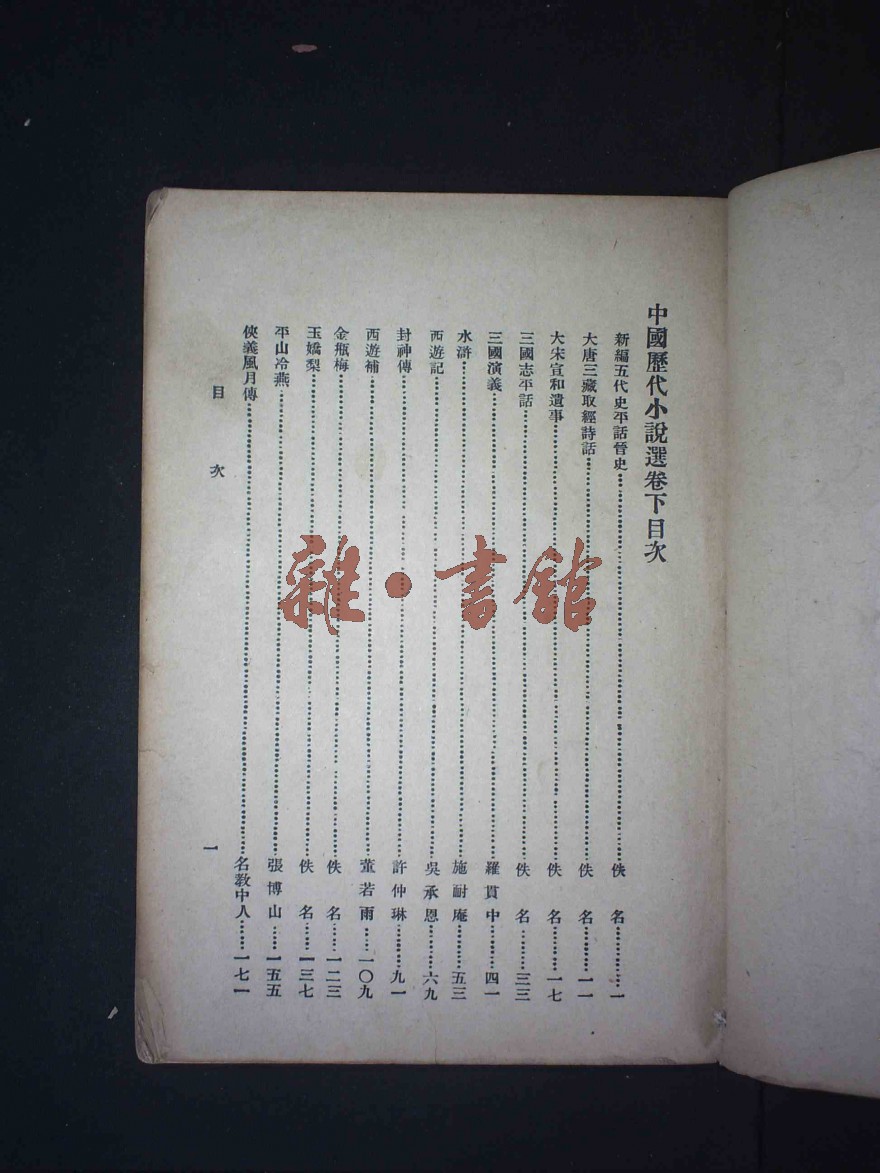 中國歷代小說選卷下目次
新編五代史平話晉史……佚名……一
大唐三藏取經詩話……佚名……一一
大宋宣和遺事……佚名……一七
三國志平話……佚名……三三
三國演義……羅貫中……四一
水滸……施耐庵……五三
西遊記……吳承恩……六九
封神傳……許仲琳……九一
西遊補……董若雨……一〇九
金瓶梅……佚名……一二三
玉嬌梨……佚名……一三七
平山冷燕……張博山……一五五
俠義風月傳……名教中人……一七一
目次
一
雜·書館